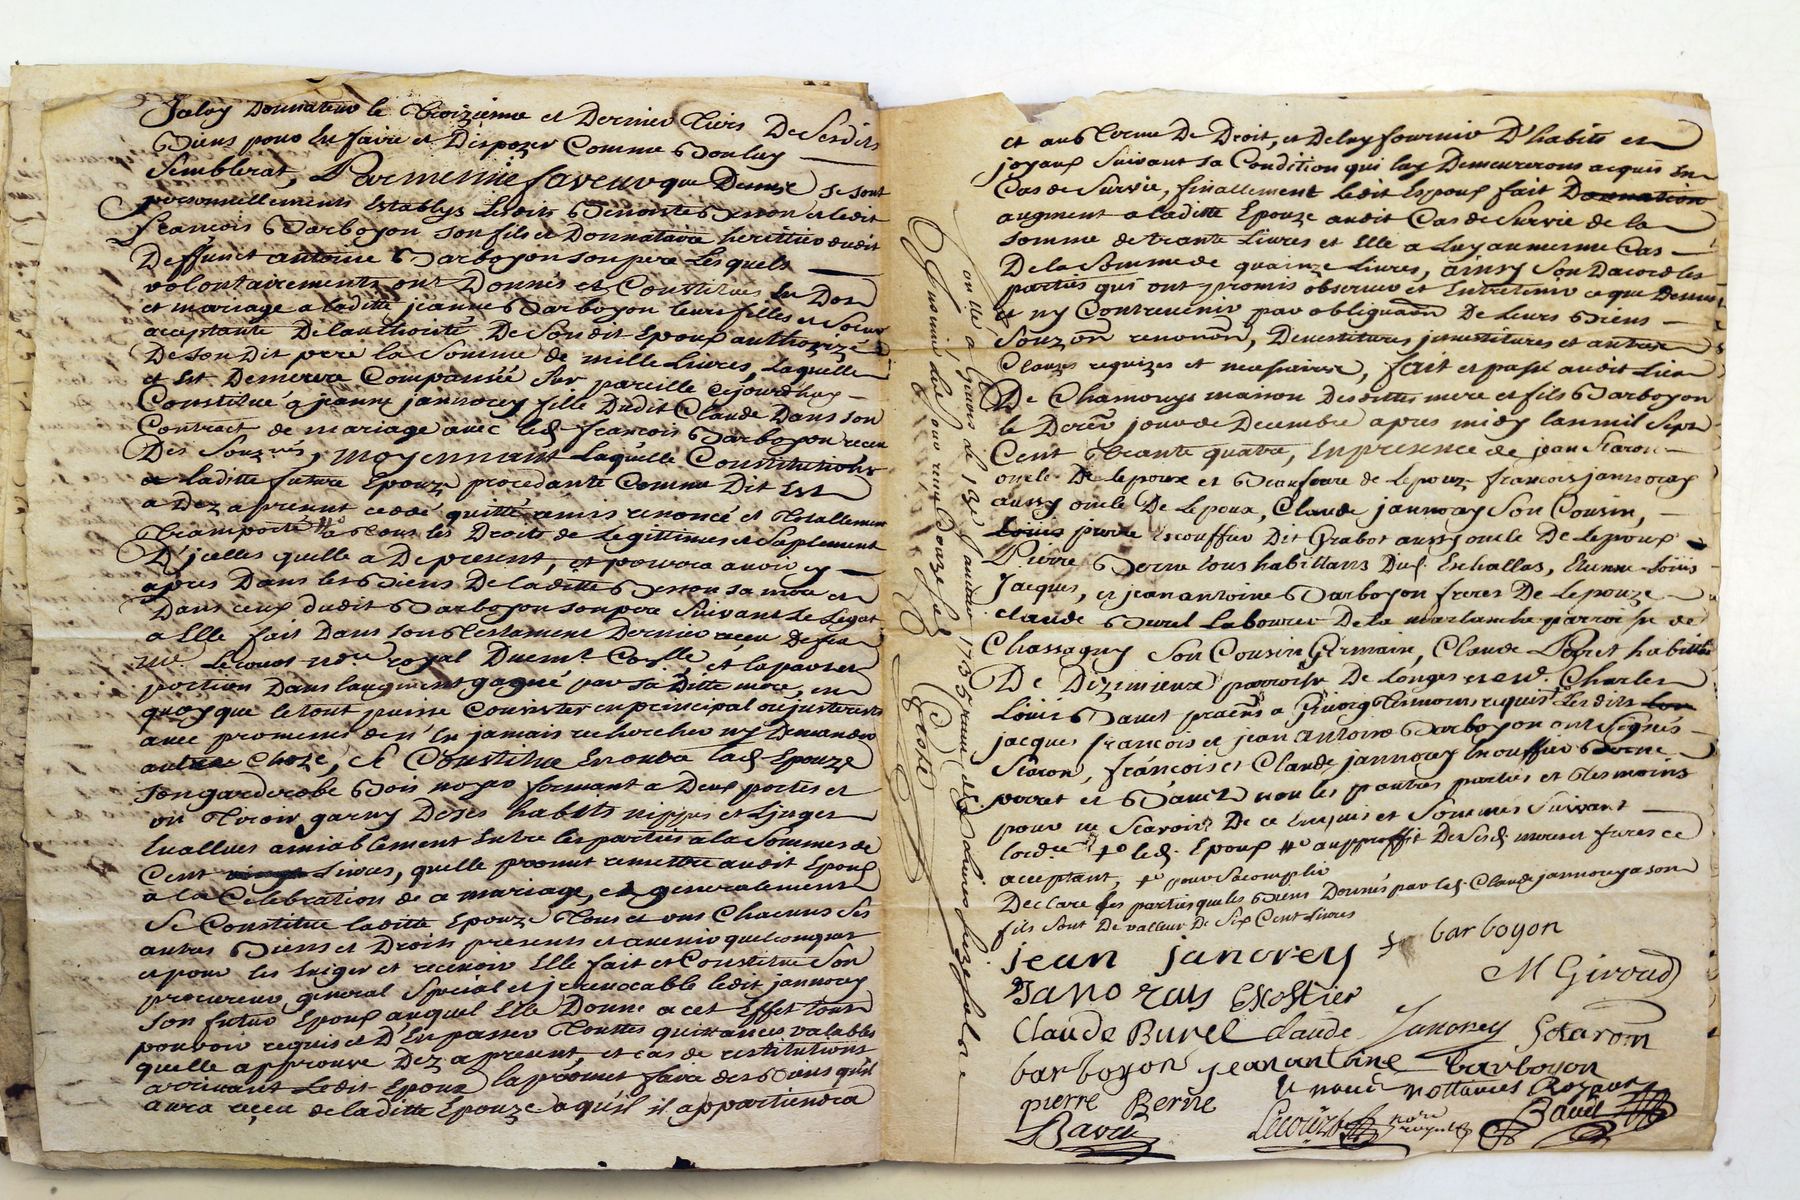 Donnateur le Troizieme et Dernier Tiers De Sesdits
Biens pour En faire et Dispozer Comme Bon luy
Semblerat, Par mesme faveur que Dessus se sont
personnellements Establys Lesdits Benoiste Besson et ledit
françois Barboyon son fils et Donnataire herittier dudit
Deffunct antoine Barboyon son pere Lesquels
volontairements ont Donnés et Constitués En Dot
et mariage a laditte jeanne Barboyon leurs filles et Soeur
aceptante De lauthorité De Sondit Epoux authorizé
De son Dit pere la Somme de mille Livres, Laquelle
et Est Demeurée Compansée Sur pareille cejourdhuy
Constitué a jeanne jannorey fille Dudit Claude Dans son
Contract de mariage avec led. françois Barboyon receu
Des Souz.nés, moyennant Laquelle Constitutions
laditte future Epouze procedante Comme Dit Est
a Dez a present ceddé quitté remis renoncé et Totallement
Transporté a Tous les Droits de Legittimes et Suplement
D'jcelles quelle a De present, et pourra avoir cy
apres Dans les Biens De laditte Besson sa mere et
Dans ceux dudit Barboyon son pere Suivant Le Legat
a Elle fait Dans son Testament Dernier receu de
Lecourt no.re royal et la part et
portion Dans laugment gagné par sa Ditte mere, en
quoy que le tout puisse Consister en principal ou justerests
avec promesse den En jamais rechercher ny Demander
autre Choze, Se Constitue En outre lad. Epouze
Son garderobe Bois noyer formant a Deux portes et
un Tiroir garny De ses habits nippes et Linges
Evallués amiablement Entre les parties a la Sommes de
Cent Livres, quelle promet remettre audit Epoux
a la Celebration de ce mariage, et generalement
Se Constitue laditte Epouze Tous et uns Chacuns Ses
autres Biens et Droits presents et avenir quelconques
et pour les Exiger et recevoir Elle fait et Constitue Son
procureur general Special et jrrevocable ledit jannorey
Son futur Epoux auquel Elle Donne a cet Effet tout
pouvoir requis et D'En passer Touttes quittances valables
quelle approuve Dez a present, et cas de restitutions
arrivant Ledit Epoux la promet faire des Biens qu'il
aura receu de laditte Epouze a qu'il il appartiendra
Controllé a Givors le 13e Janvier 1735 receu
Insinué led. jour receu Douze
et aus Terme De Droit, et Deluy fournir D'habits et
joyaux Suivant sa Condition qui luy Demeureront acquis En
Cas de Survie, finallement ledit Epoux fait Donnation
augment a laditte Epouze audit Cas de Survie de la
Somme de trante Livres et Elle a Luy au mesme Cas
De la Somme de quainze Livres, ainsy Son Dacord les
parties qui ont promis observer et Entretenir ce que Dessus
et ny Contrevenir par obligaõn De Leurs Biens
Souzõn renonõn, Devestitures jnvestitures et autres
Clauzes requizes et necessaires, fait et passé audit Lieu
De Chamouys maison Desdittes mere et fils Barboyon
le Dereñ jour de Decembre apres midy lan mil Sept
Cent Trante quatre, En presence de jean Staron
oncle De Lepoux et Beaufrere de Lepouz francois jannoray
aussy oncle De Lepoux, Claude jannoray Son Cousin,
Louis pierre Escouffier Dit Grabot aussy oncle De Lepoux
Pierre Berne tous habittans Dud. Eschallas, Etienne Loüis
Jacques, et jean antoine Barboyon freres De Lepouze
claude Burel Laboureur De La marlanche parroisse de
Chassagny Son Cousin Germain, Claude Poret habitt
De Dizimieux parroisse De Longes et Charles
Loüis Bauet a Givors Tesmoins requis Les dits
jacques francois et jean antoine Barboyon ont Signés
Staron, francois et Claude jannorey Escouffier Berne
porret et Bauet non les pautres parties et Tesmoins
pour ne Scavoir De ce Enquis et Sommés Suivant
lord.ce led. Epoux au proffit De Sesd. freres ce
acceptant, pour Sacomplir
Declare les parties que les Biens Donnés par led. Claude jannorey a son
fils Sont De valleur De Six Cent Livres
jean janorey barboyon
M Giroud
Janoray Escoffier
Claude Burel claude Janorey Staron
barboyon jean antoine barboyon
pierre Berne nottaires Royaux
Bauet Lecourt no.re royal Bauet